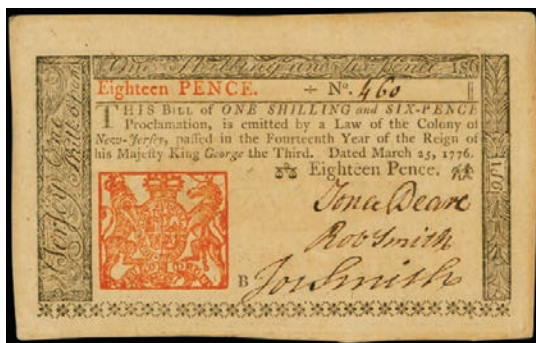 One Shilling and six-pence. 18d
Eighteen PENCE. ÷ No. 460
THIS BILL of ONE SHILLING and SIX-PENCE
Proclamation, is emitted by a Law of the Colony of
New-Jerſey, paſſed in the Fourteenth Year of the Reign of
his Majeſty King George the Third. Dated March 25, 1776.
Eighteen Pence.
Jona Deare
Rob Smith
B Jos Smith
Jerſey One